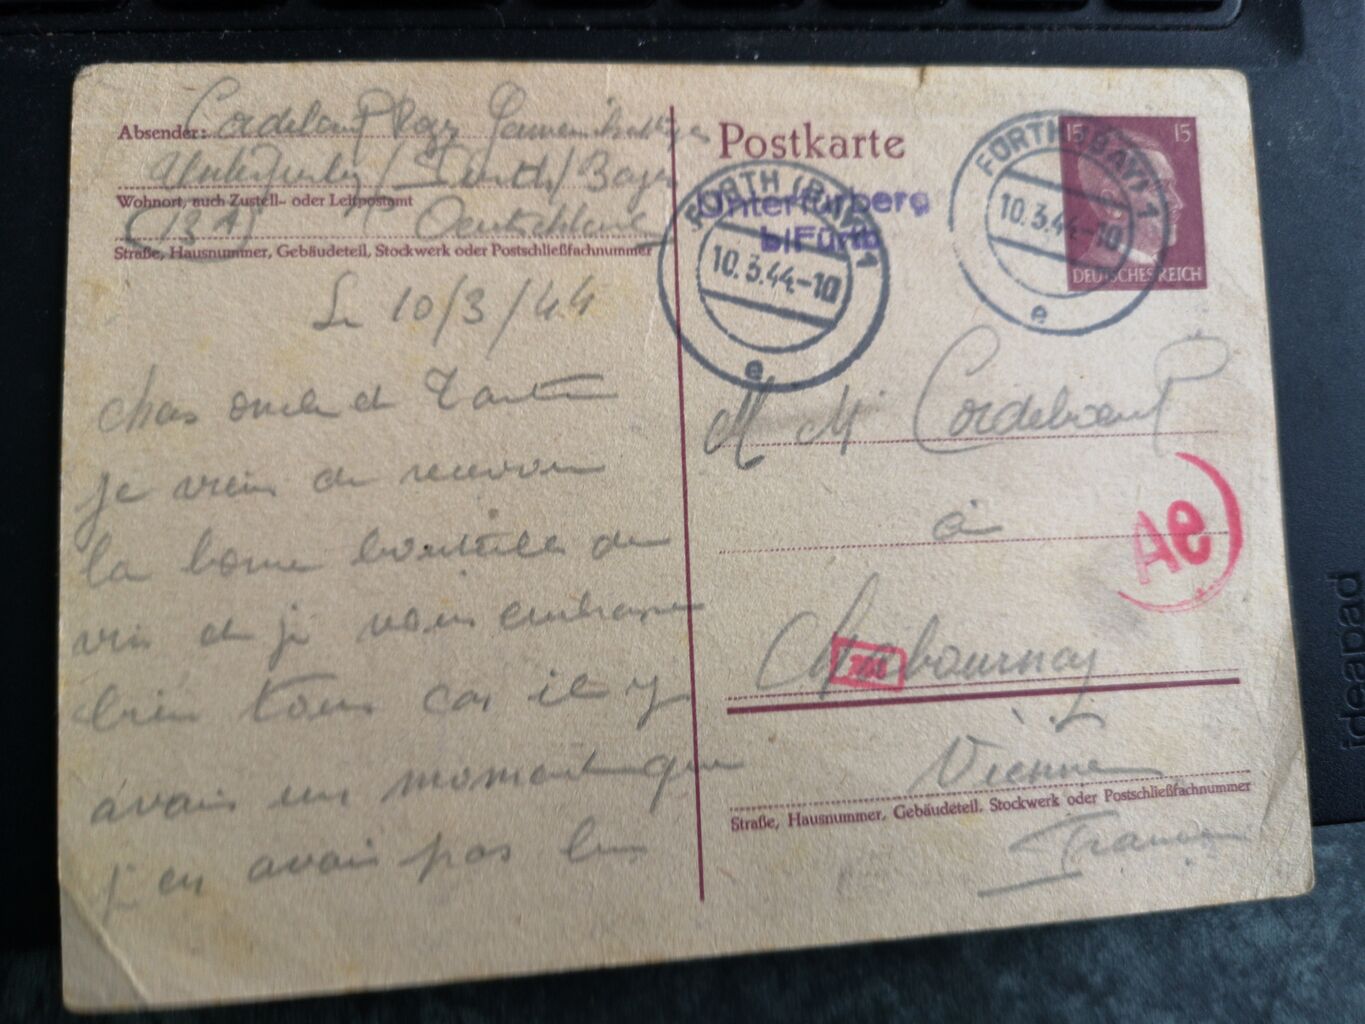 Absender:
Wohnort, auch Zustell- oder Leitpostamt
(13A) Deutschland
Straße, Hausnummer, Gebäudeteil, Stockwerk oder Postschließfachnummer
Le 10/3/44
chers oncle et Tante
je viens de recevoir
la bonne bouteille de
vin et je vous embrasse
bien tous car il y
avais un moment que
j en avais pas bu
Postkarte
FÜRTH (BAY) 1
10.3.44.-10
e
Unterfürberg
b/Fürth
FÜRTH (BAY) 1
10.3.44.-10
e
15 15
DEUTSCHES REICH
M M Cordeboeuf
à
Ae
Vienne
Straße, Hausnummer, Gebäudeteil, Stockwerk oder Postschließfachnummer
France
ideapad